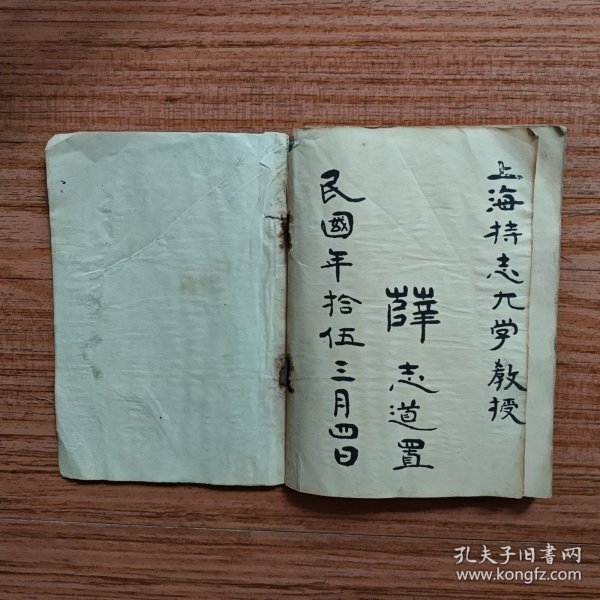 上海持志大学教授
薛志道置
民國年拾伍三月四日
孔夫子旧书网
www.kongfz.com